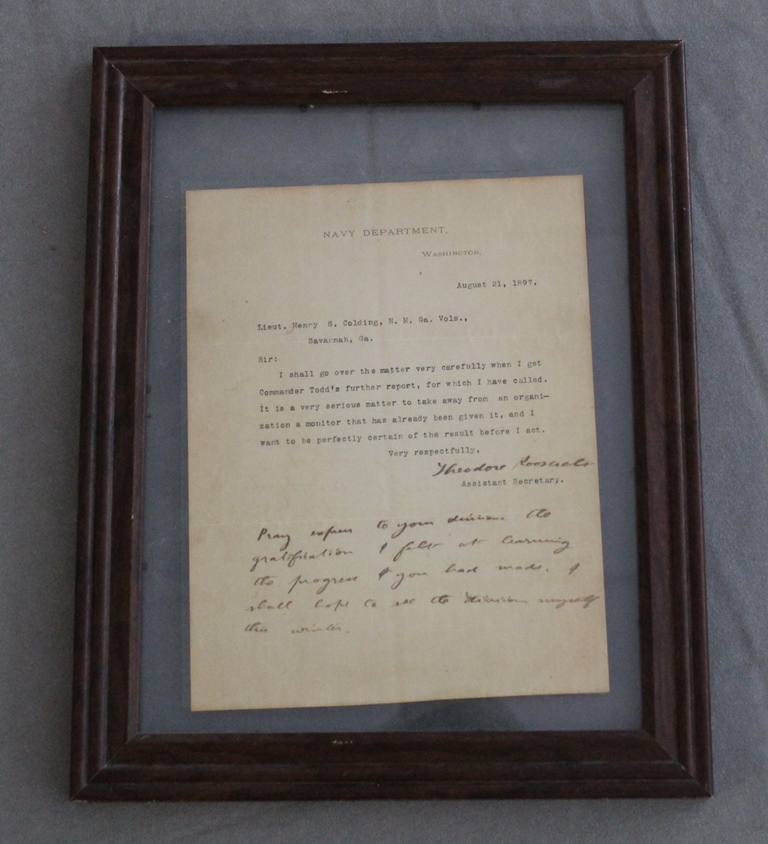 NAVY DEPARTMENT,
WASHINGTON,
August 21, 1897.
Lieut. Henry S. Colding, N. M. Ga. Vols.,
Savannah, Ga.
Sir:
I shall go over the matter very carefully when I get
Commander Todd's further report, for which I have called.
It is a very serious matter to take away from an organi-
zation a monitor that has already been given it, and I
want to be perfectly certain of the result before I act.
Very respectfully,
Theodore Roosevelt
Assistant Secretary.
Pray express to your division the
gratification I felt at learning
the progress you had made. I
shall hope to see the division myself
this winter.